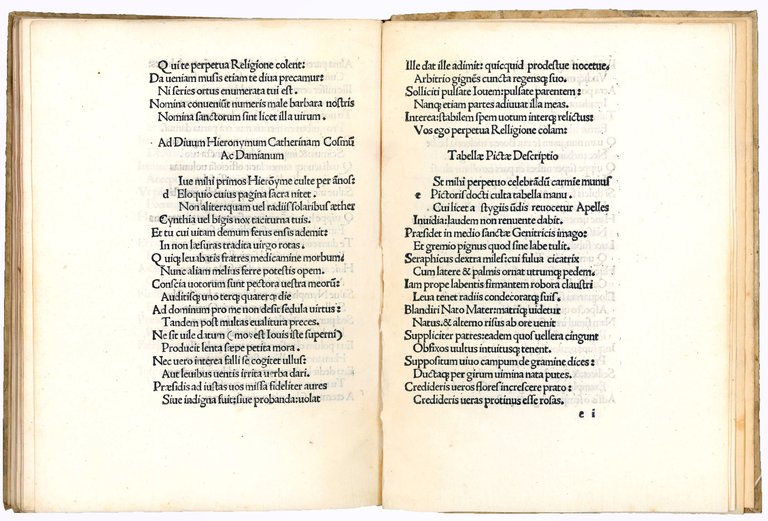 Qui te perpetua Religione colent:
Da ueniam musis etiam te diua precamur:
Ni series ortus enumerata tui est.
Nomina conueniūt numeris male barbara nostris
Nomina sanctorum sint licet illa uirum.
Ad Diuum Hieronymum Catherinam Cosmū
Ac Damianum
Iue mihi primos Hierōyme culte per ānos:
d Elo quio cuius pagina sacra nitet.
Non aliter: quam uel radiis solaribus æther
Cynthia uel bigis nox taciturna tuis.
Et tu cui uitam demum ferus ensis ademit:
In non læsuras tradita uirgo rotas.
Quiq; leuabatis fratres medicamine morbum:
Nunc aliam melius ferre potestis opem.
Conscia uotorum sunt pectora uestra meorū:
Auditisq; uno terq; quaterq; die
Ad dominum pro me non desit sedula uirtus:
Tandem post multas eualitura preces.
Ne sit uile datum (mos est Iouis iste superni)
Producit lenta sæpe petita mora.
Nec uero interea falli se cogitet ullus:
Aut leuibus uentis irrita uerba dari.
Præsidis ad iustas uos missa fideliter aures
Siue indigna fuit: siue probanda: uolat
Ille dat ille adimit: quicquid prodestue nocetue.
Arbitrio gignēs cuncta regensq; suo.
Solliciti pulsate Iouem: pulsate parentem:
Nanq; etiam partes adiuuat illa meas.
Interea: stabilem spem uotum interq; relictus:
Vos ego perpetua Relligione colam:
Tabellæ Pictæ Descriptio
St mihi perpetuo celebrādū carmīe munus
e Pictoris docti culta tabella manu.
Cui licet a stygiis ūdis reuocetur Apelles
Inuidia: laudem non renuente dabit.
Præsidet in medio sanctæ Genitricis imago:
Et gremio pignus quod sine labe tulit.
Seraphicus dextra miles: cui fulua cicatrix
Cum latere & palmis ornat utrumq; pedem.
Iam prope labentis firmantem robora claustri
Leua tenet radiis condecoratq; suis.
Blandiri Nato Mater: matriq; uidetur
Natus. & alterno risus ab ore uenit
Suppliciter patres: eadem quos uellera cingunt
Obfixos uulsus intuitusq; tenent.
Suppositum uiuo campum de gramine dices:
Ductaq; per girum uimina nata putes.
Credideris ueros flores increscere prato:
Credideris ueras protinus esse rosas.
e i